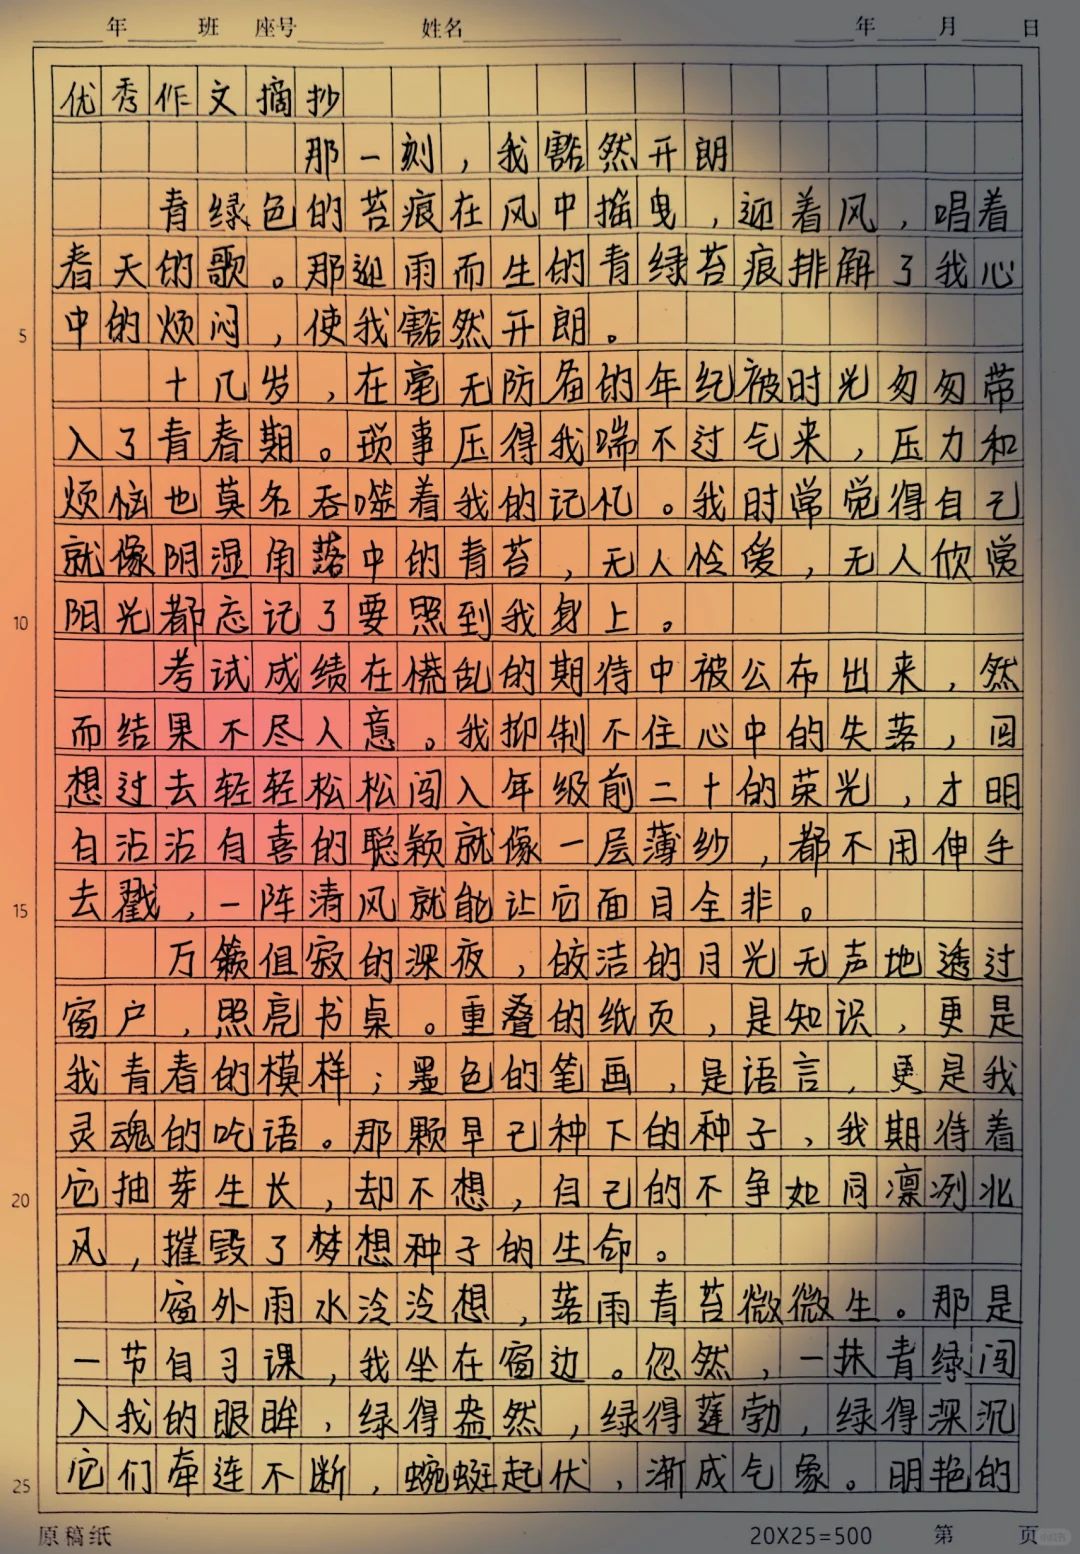 年 班 座号 姓名 年 月 日
优秀作文摘抄
那一刻，我豁然开朗
青绿色的苔痕在风中摇曳，迎着风，唱着
春天的歌。那迎雨而生的青绿苔痕排解了我心
5 中的烦闷，使我豁然开朗。
十几岁，在毫无防备的年纪被时光匆匆带
入了青春期。琐事压得我喘不过气来，压力和
烦恼也莫名吞噬着我的记忆。我时常觉得自己
就像阴湿角落中的青苔，无人怜爱，无人欣赏
10 阳光都忘记了要照到我身上。
考试成绩在慌乱的期待中被公布出来，然
而结果不尽人意。我抑制不住心中的失落，回
想过去轻轻松松闯入年级前二十的荣光，才明
白沾沾自喜的聪颖就像一层薄纱，都不用伸手
15 去戳，一阵清风就能让它面目全非。
万籁俱寂的深夜，皎洁的月光无声地透过
窗户，照亮书桌。重叠的纸页，是知识，更是
我青春的模样；墨色的笔画，是语言，更是我
灵魂的呓语。那颗早已种下的种子，我期待着
20 它抽芽生长，却不想，自己的不争如同凛冽北
风，摧毁了梦想种子的生命。
窗外雨水泠泠想，落雨青苔微微生。那是
一节自习课，我坐在窗边。忽然，一抹青绿闯
入我的眼眸，绿得盎然，绿得蓬勃，绿得深沉
25 它们牵连不断，蜿蜒起伏，渐成气象。明艳的
原稿纸 20X25=500 第 页
小红书